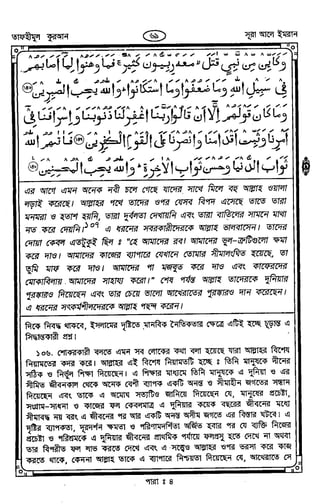 তাফহীমুল কুরআন
৬৯
সূরা আলে ইমরান
وَكَاَيِّنْ مِّنْ نَّبِيٍّ قٰتَلَ ۙ مَعَهٗ رِبِّيُّوْنَ كَثِيْرٌ ۚ فَمَا وَهَنُوْا لِمَآ اَصَابَهُمْ
فِيْ سَبِيْلِ اللّٰهِ وَمَا ضَعُفُوْا وَمَا اسْتَكَانُوْا ؕ وَاللّٰهُ يُحِبُّ الصّٰبِرِيْنَ ﴿١٤٦﴾
وَمَا كَانَ قَوْلَهُمْ اِلَّآ اَنْ قَالُوْا رَبَّنَا اغْفِرْ لَنَا ذُنُوْبَنَا وَاِسْرَافَنَا فِيْٓ
اَمْرِنَا وَثَبِّتْ اَقْدَامَنَا وَانْصُرْنَا عَلَى الْقَوْمِ الْكٰفِرِيْنَ ﴿١٤٧﴾ فَاٰتٰىهُمُ اللّٰهُ
ثَوَابَ الدُّنْيَا وَحُسْنَ ثَوَابِ الْاٰخِرَةِ ؕ وَاللّٰهُ يُحِبُّ الْمُحْسِنِيْنَ ﴿١٤٨﴾
এর আগে এমন অনেক নবী চলে গেছে যাদের সাথে মিলে বহু আল্লাহ ওয়ালা
লড়াই করেছে। আল্লাহর পথে তাদের ওপর যেসব বিপদ এসেছে তাতে তারা
মনমরা ও হতাশ হয়নি, তারা দুর্বলতা দেখায়নি এবং তারা বাতিলের সামনে মাথা
নত করে দেয়নি।১০৭ এ ধরনের সবরকারীদেরকে আল্লাহ ভালবাসেন। তাদের
দোয়া কেবল এতটুকুই ছিল ঃ "হে আমাদের রব! আমাদের ভুল-ত্রুটিগুলো ক্ষমা
করে দাও। আমাদের কাজের ব্যাপারে যেখানে তোমার সীমালংঘিত হয়েছে, তা
তুমি মাফ করে দাও। আমাদের পা মজবুত করে দাও এবং কাফেরদের
মোকাবিলায় আমাদের সাহায্য করো।" শেষ পর্যন্ত আল্লাহ তাদেরকে দুনিয়ার
পুরস্কারও দিয়েছেন এবং তার চেয়ে ভালো আখেরাতের পুরস্কারও দান করেছেন।
এ ধরনের সৎকর্মশীলদেরকে আল্লাহ পছন্দ করেন।
দিকে নিবদ্ধ থাকবে, ইসলামের দৃষ্টিতে মানবিক নৈতিকতার ক্ষেত্রে এটিই হচ্ছে চূড়ান্ত ও
সিদ্ধান্তকারী প্রশ্ন।
১০৬. শোকরকারী বলতে এমন সব লোকের কথা বলা হয়েছে যারা আল্লাহর বিশেষ
নিয়ামতের কদর করে। আল্লাহর এই বিশেষ নিয়ামতটি হচ্ছে ঃ তিনি মানুষকে দীনের
সঠিক ও নির্ভুল শিক্ষা দিয়েছেন। এ শিক্ষার মাধ্যমে তিনি মানুষকে এ দুনিয়া ও এর
সীমিত জীবনকাল থেকে অনেক বেশী ব্যাপক একটি অনন্ত ও সীমাহীন জগতের সন্ধান
দিয়েছেন এবং তাকে এ অমোঘ সত্যটিও জানিয়ে দিয়েছেন যে, মানুষের প্রচেষ্টা,
সংগ্রাম-সাধনা ও কাজের ফল কেবলমাত্র এ দুনিয়ার কয়েক বছরের জীবনের মধ্যে
সীমাবদ্ধ নয় বরং এ জীবনের পর আর একটি অনন্ত অসীম জগতে এর বিস্তার ঘটবে। এ
দৃষ্টির ব্যাপকতা, দূরদর্শন ক্ষমতা ও পরিণামদর্শিতা অর্জিত হবার পর যে ব্যক্তি নিজের
প্রচেষ্টা ও পরিশ্রমকে এ দুনিয়ার জীবনের প্রাথমিক পর্যায়ে ফলপ্রসূ হতে দেখে না অথবা
তার বিপরীত ফল লাভ করতে দেখে এবং এ সত্ত্বেও আল্লাহর ওপর ভরসা করে কাজ
করতে থাকে, কেননা আল্লাহ তাকে এ ব্যাপারে নিশ্চয়তা দিয়েছেন যে, আখেরাতে সে
পারা ঃ ৪